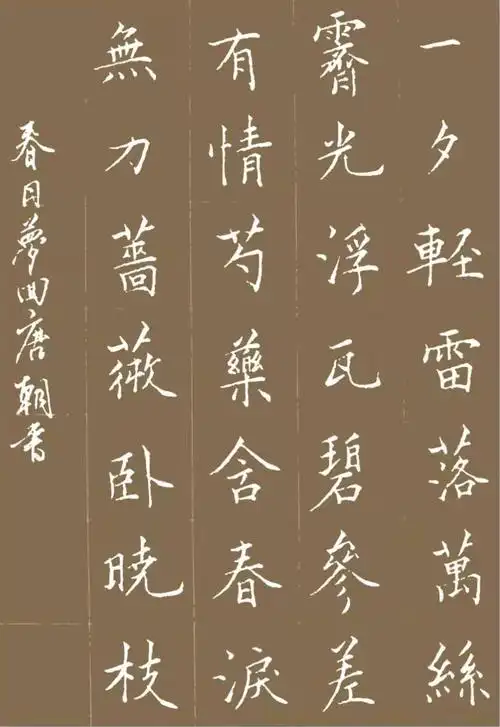 一夕軽雷落萬絲
霽光浮瓦碧參差
有情芍藥含春淚
無力薔薇卧曉枝
春日夢回唐朝書